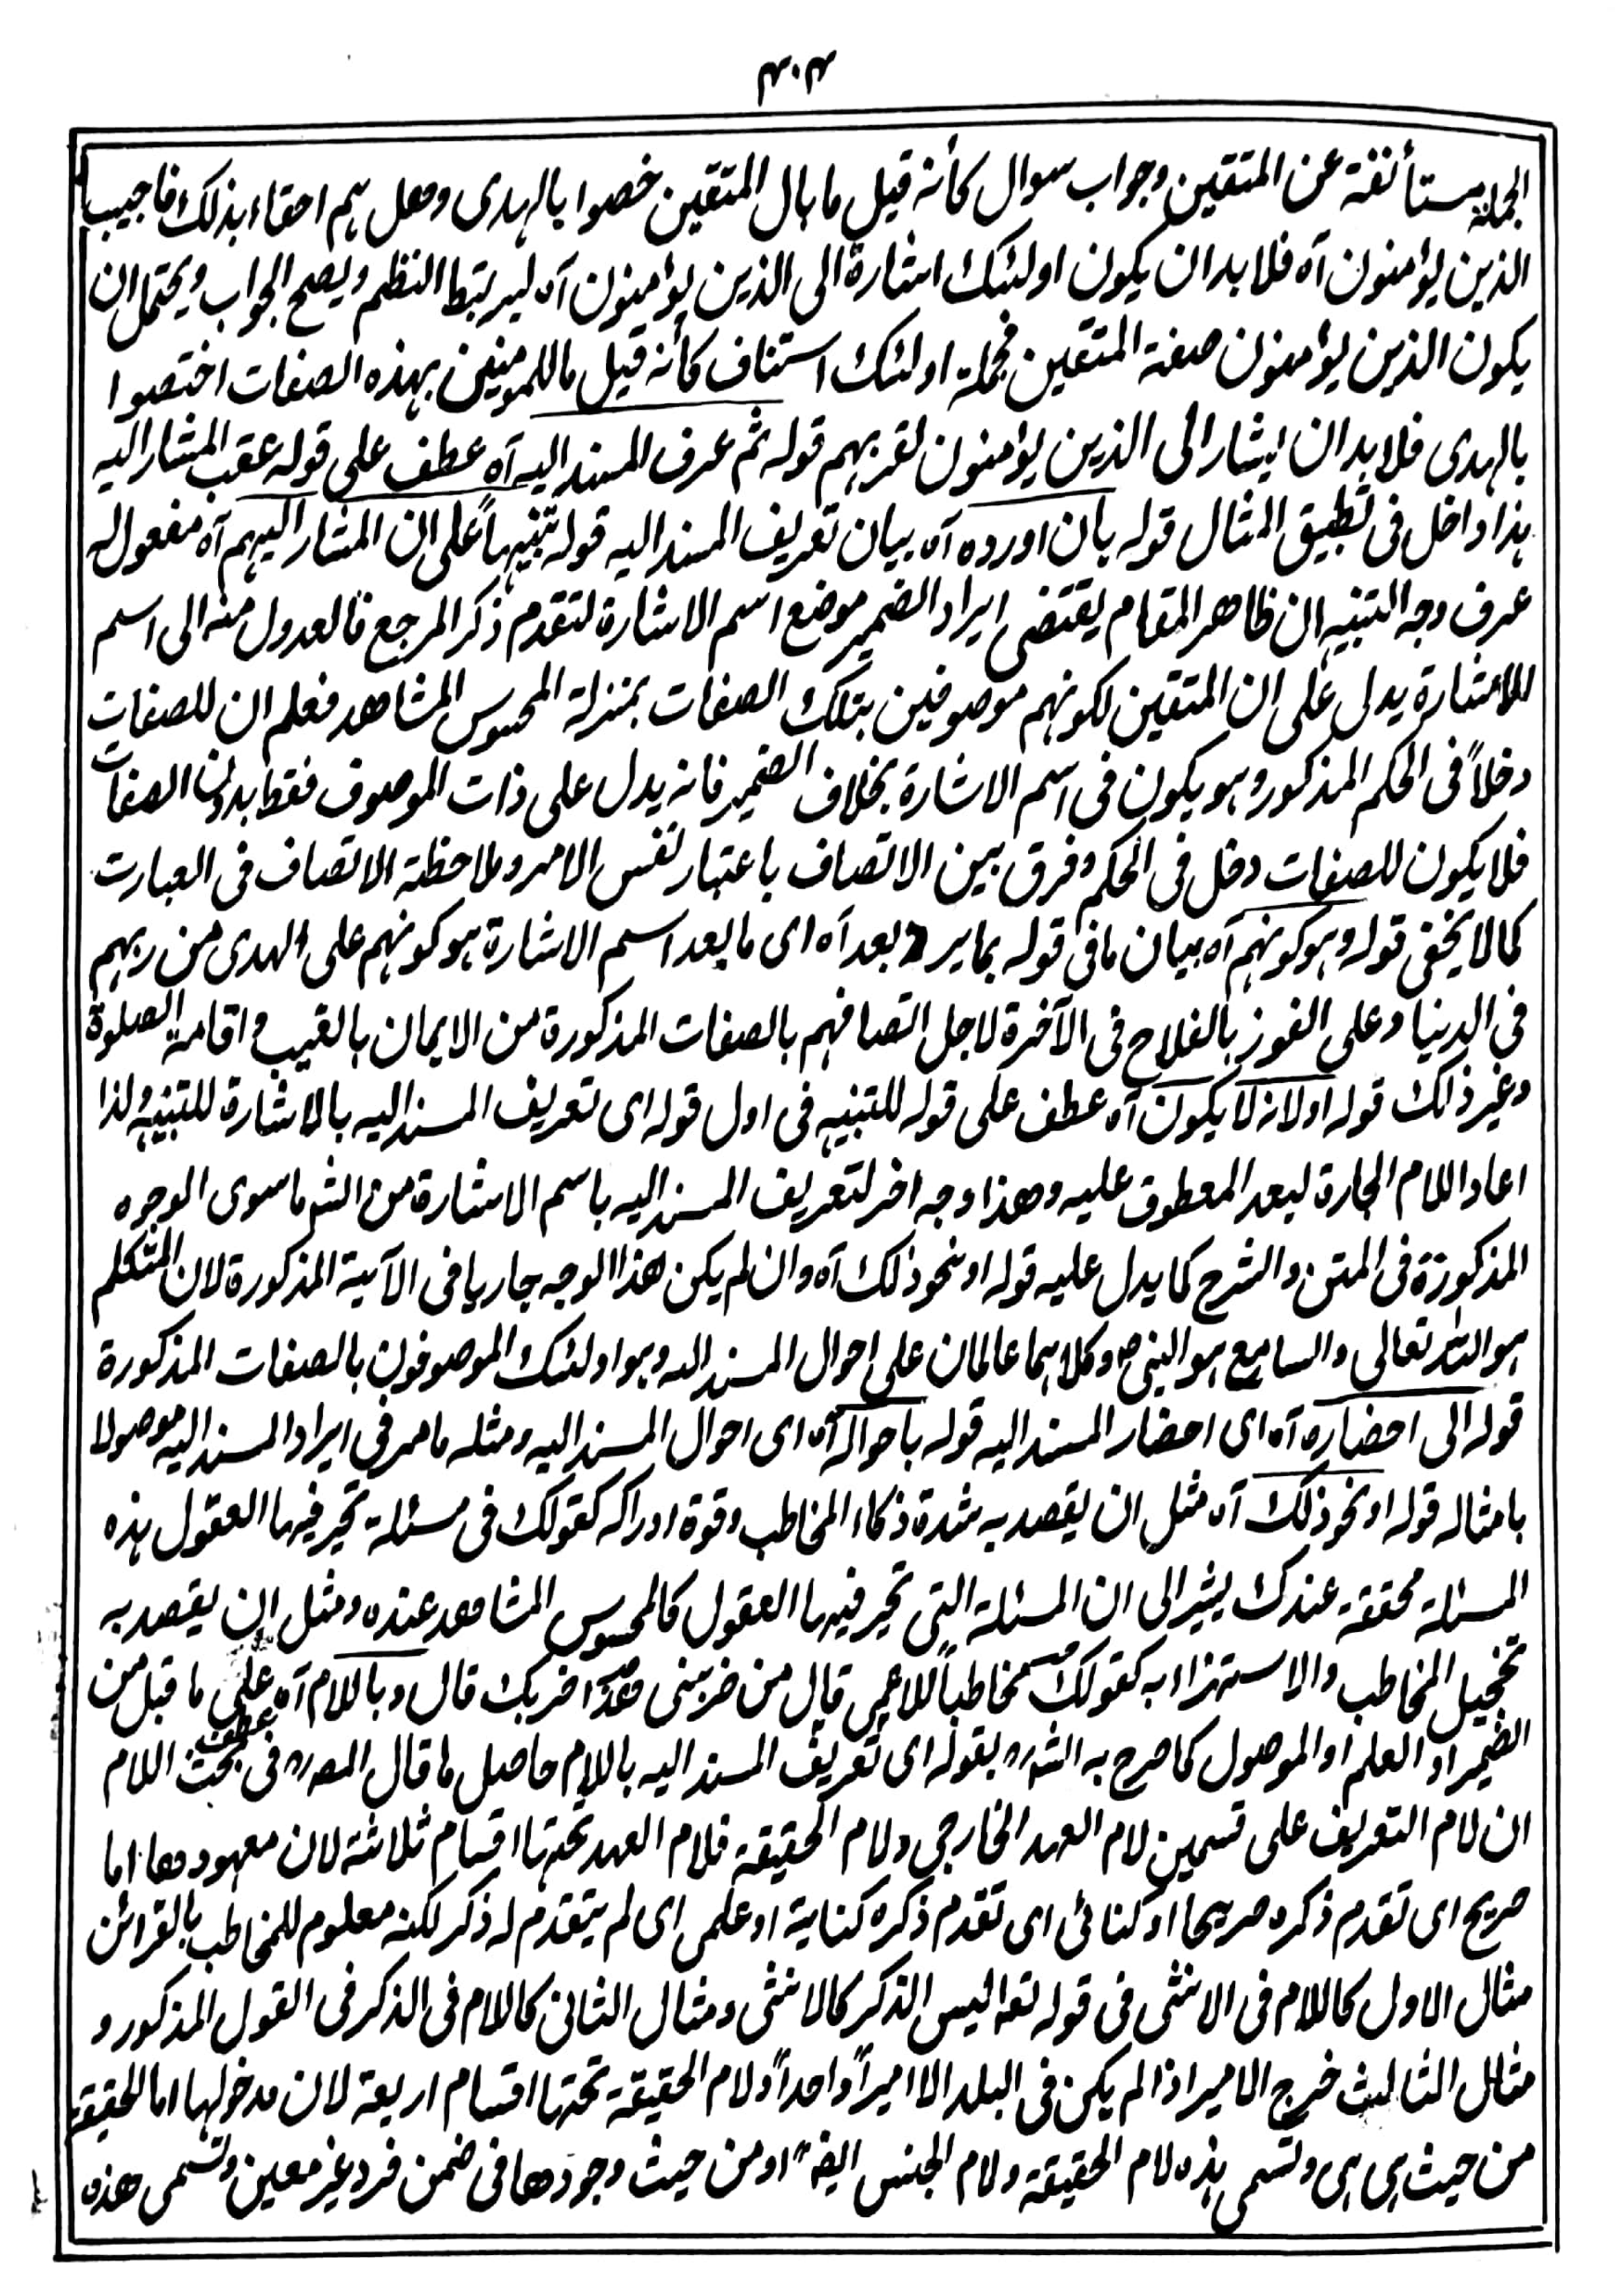 ۳۰۳
الجملة مستأنفة عن المتقين وجواب سوال كأنه قيل ما بال المتقين خصوا بالهدى وهل هم احقاء بذلك فاجيب
الذين يؤمنون آه فلابد ان يكون اولئك اشارة الى الذين يؤمنون آه ليرتبط النظم ويصح الجواب ويحتمل ان
يكون الذين يؤمنون صفة المتقين فجملة اولئك استناف كأنه قيل ما للمومنين بهذه الصفات اختصوا
بالهدى فلابد ان يشار الى الذين يؤمنون لقربهم قوله ثم عرف المسند اليه آه عطف على قوله عقب المشار اليه
هذا داخل فى تطبيق المثال قوله بان اورده آه بيان تعريف المسند اليه قوله تنبيهاً على ان المشار اليهم آه مفعول له
عرف وجه التنبيه ان ظاهر المقام يقتضى ايراد الضمير موضع اسم الاشارة لتقدم ذكر المرجع فالعدول منه الى اسم
للاشارة يدل على ان المتقين لكونهم موصوفين بتلك الصفات بمنزلة المحسوس المشاهد فعلم ان للصفات
دخلاً فى الحكم المذكور وهو يكون فى اسم الاشارة بخلاف الضمير فانه يدل على ذات الموصوف فقط بدون الصفات
فلا يكون للصفات دخل فى الحكم وفرق بين الاتصاف باعتبار نفس الامر وملاحظة الاتصاف فى العبارت
كما لا يخفى قوله وهو كونهم آه بيان ما فى قوله بما يرد بعد آه اى ما بعد اسم الاشارة هو كونهم على الهدى من ربهم
فى الدنيا وعلى الفوز بالفلاح فى الآخرة لاجل اتصافهم بالصفات المذكورة من الايمان بالغيب واقامة الصلوة
وغير ذلك قوله اولانه لا يكون آه عطف على قوله للتنبيه فى اول قوله اى تعريف المسند اليه بالاشارة للتنبيه ولذا
اعاد اللام الجارة لبعد المعطوف عليه وهذا وجه اخر لتعريف المسند اليه باسم الاشارة من الشر ما سوى الوجوه
المذكورة فى المتن والشرح كما يدل عليه قوله او نحو ذلك آه وان لم يكن هذا الوجه جاريا فى الآية المذكورة لان المتكلم
هو الله تعالى والسامع هو النبى ص وكلاهما عالمان على احوال المسند اليه وهو اولئك والموصوفون بالصفات المذكورة
قوله الى احضاره آه اى احضار المسند اليه قوله باحواله آه اى احوال المسند اليه ومثله ما مر فى ايراد المسند اليه موصولا
بامثاله قوله او نحو ذلك آه مثل ان يقصد به شدة ذكاء المخاطب وقوة ادراكه كقولك فى مسئلة تحير فيها العقول هذه
المسئلة محققة عندك يشير الى ان المسئلة التى تحير فيها العقول كالمحسوس المشاهد عنده ومثل ان يقصد به
تخجيل المخاطب والاستهزاء به كقولك مخاطباً للاعمى قال من ضربنى هذا ضربك قال وباللام آه عطف على ما قبل من
الضمير او العلم او الموصول كما صرح به الشره بقوله اى تعريف المسند اليه باللام حاصل ما قال المصره فى بحث اللام
ان لام التعريف على قسمين لام العهد الخارجى ولام الحقيقة فلام العهد تحتها اقسام ثلاثة لان معهودها اما
صريح اى تقدم ذكره صريحا او كنائى اى تقدم ذكره كناية او علمى اى لم يتقدم له ذكر لكنه معلوم للمخاطب بالقرائن
مثال الاول كاللام فى الانثى فى قوله تعا ليس الذكر كالانثى ومثال الثانى كاللام فى الذكر فى القول المذكور و
مثال الثالث خرج الامير اذا لم يكن فى البلد الا اميراً واحداً ولام الحقيقة تحتها اقسام اربعة لان مدخولها اما الحقيقة
من حيث هى هى وتسمى هذه لام الحقيقة ولام الجنس ايضً او من حيث وجودها فى ضمن فرد غير معين وتسمى هذه